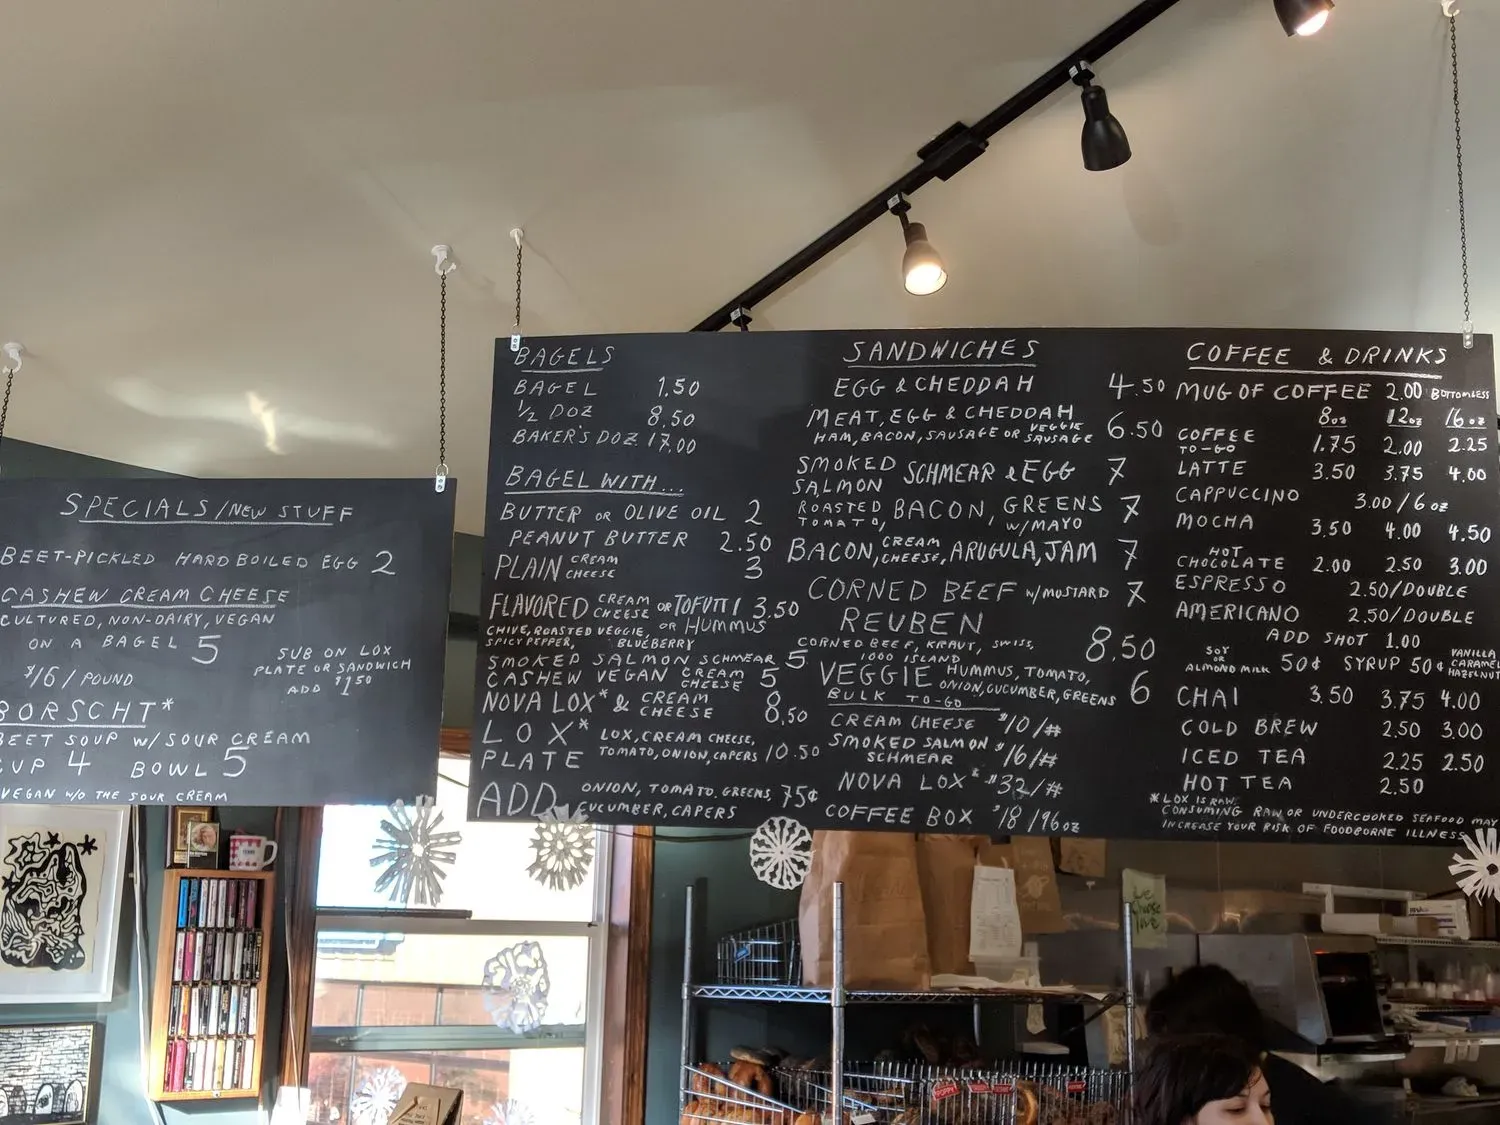 SPECIALS/NEW STUFF
BEET-PICKLED HARD BOILED EGG 2
CASHEW CREAM CHEESE
CULTURED, NON-DAIRY, VEGAN
ON A BAGEL 5
$16/POUND
SUB ON LOX
PLATE OR SANDWICH
ADD $1.50
BORSCHT*
BEET SOUP W/SOUR CREAM
CUP 4 BOWL 5
VEGAN W/O THE SOUR CREAM
BAGELS
BAGEL 1.50
1/2 DOZ 8.50
BAKER'S DOZ 17.00
BAGEL WITH...
BUTTER OR OLIVE OIL 2
PEANUT BUTTER 2.50
PLAIN CREAM CHEESE 3
FLAVORED CREAM CHEESE OR TOFUTTI OR HUMMUS 3.50
CHIVE, ROASTED VEGGIE,
SPICY PEPPER, BLUEBERRY
SMOKED SALMON SCHMEAR 5
CASHEW VEGAN CREAM CHEESE 5
NOVA LOX* & CREAM CHEESE 8.50
LOX* PLATE LOX, CREAM CHEESE, TOMATO, ONION, CAPERS 10.50
ADD ONION, TOMATO, GREENS, CUCUMBER, CAPERS 75¢
SANDWICHES
EGG & CHEDDAH 4.50
MEAT, EGG & CHEDDAH 6.50
HAM, BACON, SAUSAGE OR VEGGIE SAUSAGE
SMOKED SALMON SCHMEAR & EGG 7
ROASTED TOMATO, BACON, GREENS W/MAYO 7
BACON, CREAM CHEESE, ARUGULA, JAM 7
CORNED BEEF W/MUSTARD 7
REUBEN 8.50
CORNED BEEF, KRAUT, SWISS,
1000 ISLAND
VEGGIE HUMMUS, TOMATO, ONION, CUCUMBER, GREENS 6
BULK TO-GO
CREAM CHEESE $10/#
SMOKED SALMON SCHMEAR $16/#
NOVA LOX* $32/#
COFFEE BOX $18/96oz
COFFEE & DRINKS
MUG OF COFFEE 2.00 BOTTOMLESS
8oz 12oz 16oz
COFFEE TO-GO 1.75 2.00 2.25
LATTE 3.50 3.75 4.00
CAPPUCCINO 3.00/6oz
MOCHA 3.50 4.00 4.50
HOT CHOCOLATE 2.00 2.50 3.00
ESPRESSO 2.50/DOUBLE
AMERICANO 2.50/DOUBLE
ADD SHOT 1.00
SOY OR ALMOND MILK 50¢ SYRUP 50¢ VANILLA CARAMEL HAZELNUT
CHAI 3.50 3.75 4.00
COLD BREW 2.50 3.00
ICED TEA 2.25 2.50
HOT TEA 2.50
*LOX IS RAW
CONSUMING RAW OR UNDERCOOKED SEAFOOD MAY
INCREASE YOUR RISK OF FOODBORNE ILLNESS
we
choose
love